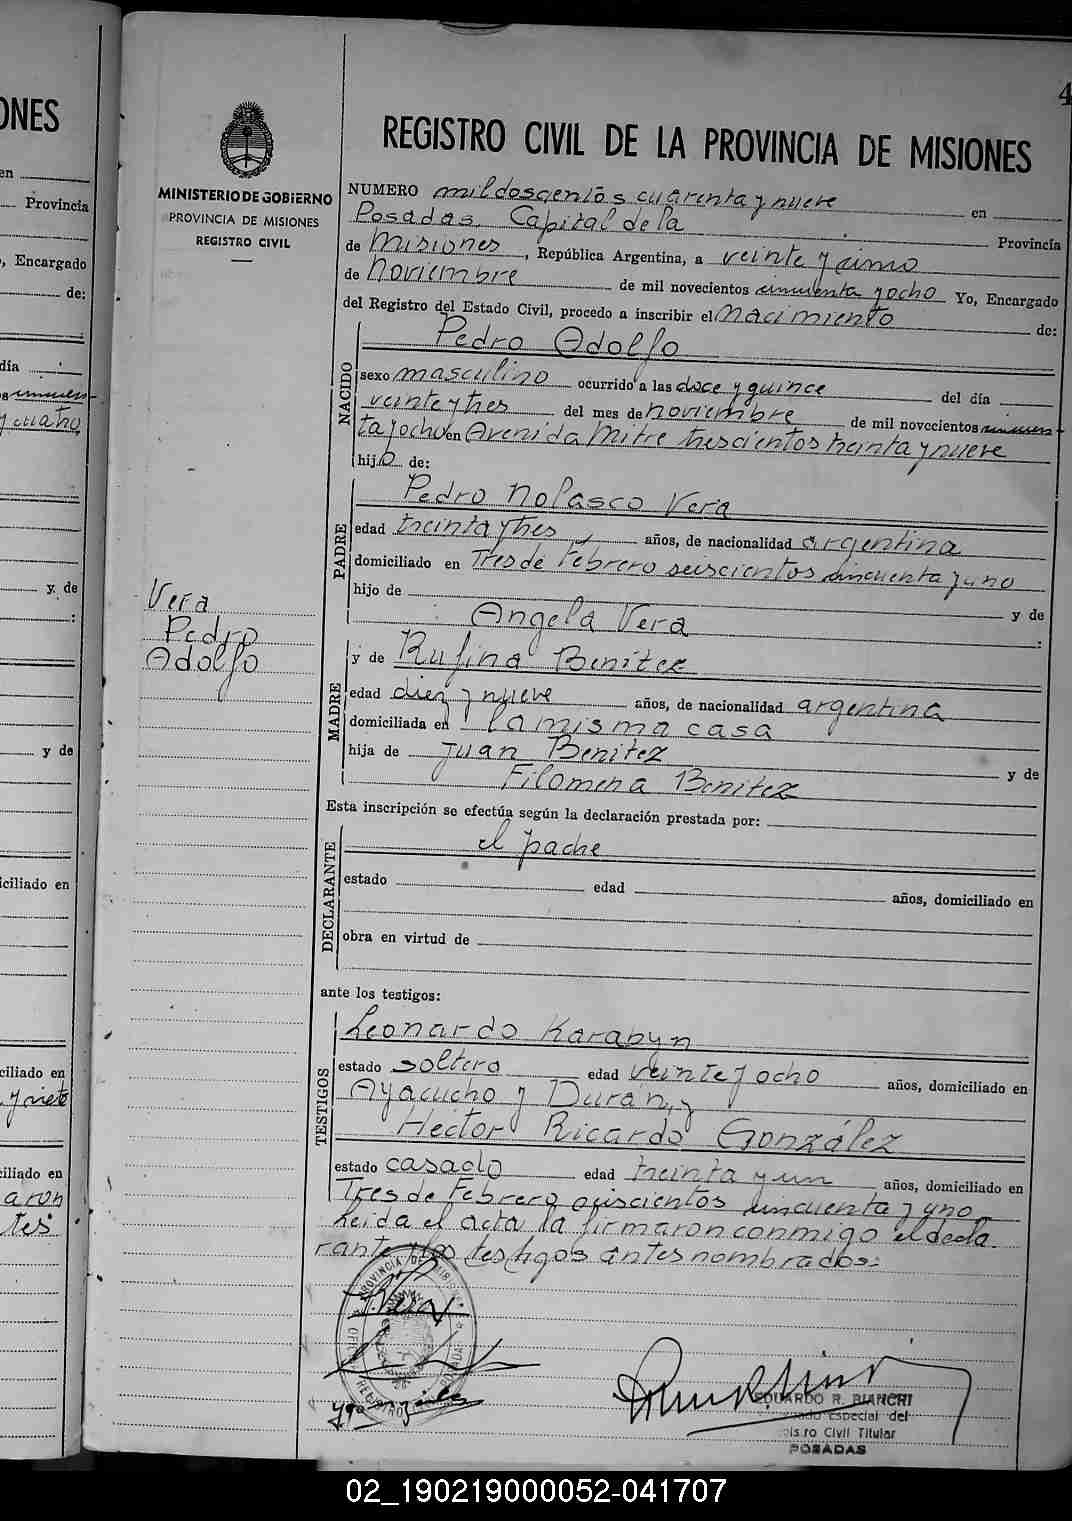 ONES
en
Provincia
, Encargado
de:
día
y cuatro
y de
:
y de
iciliado en
ciliado en
y siete
iciliado en
aron
tes
4
MINISTERIO DE GOBIERNO
PROVINCIA DE MISIONES
REGISTRO CIVIL
Vera
Pedro
Adolfo
REGISTRO CIVIL DE LA PROVINCIA DE MISIONES
NUMERO mil doscientos cuarenta y nueve en
Posadas, Capital de la Provincia
de Misiones, República Argentina, a veinte y cinco
de Noviembre de mil novecientos cincuenta y ocho Yo, Encargado
del Registro del Estado Civil, procedo a inscribir el nacimiento de:
NACIDO
Pedro Adolfo
sexo masculino ocurrido a las doce y quince del día
veinte y tres del mes de noviembre de mil novecientos cincuen-
ta y ocho en Avenida Mitre trescientos treinta y nueve
hijo de:
PADRE
Pedro Nolasco Vera
edad treinta y tres, años, de nacionalidad argentina
domiciliado en Tres de Febrero seiscientos cincuenta y uno
hijo de y de
Angela Vera :
MADRE
y de Rufina Benitez
edad diez y nueve años, de nacionalidad argentina
domiciliada en la misma casa
hija de Juan Benitez y de
Filomena Benitez
Esta inscripción se efectúa según la declaración prestada por:
DECLARANTE
el padre
estado edad años, domiciliado en
obra en virtud de
ante los testigos:
TESTIGOS
Leonardo Karabyn
estado soltero edad veinte y ocho años, domiciliado en
Ayacucho y Durán, y
Héctor Ricardo González
estado casado edad treinta y un años, domiciliado en
Tres de Febrero seiscientos cincuenta y uno
Leida el acta la firmaron conmigo el decla-
rante y los testigos antes nombrados.
EDUARDO R. BIANCHI
Especial del
Civil Titular
POSADAS
02_190219000052-041707